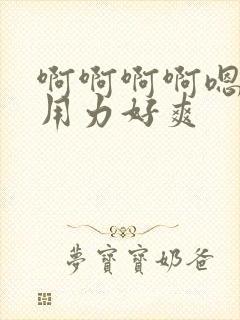 啊啊啊啊嗯
用力好爽
夢寶寶奶爸